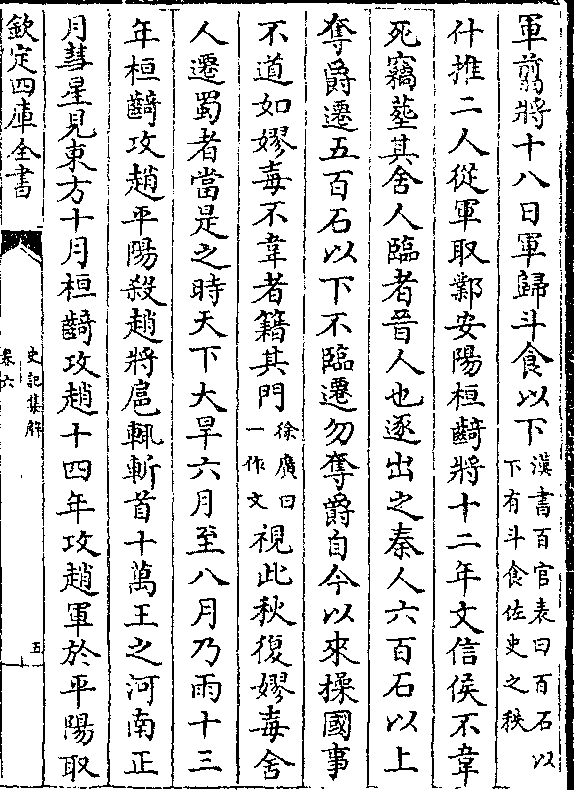 軍翦將十八日軍歸斗食以下漢書百官表曰百石以下有斗食佐史之秩
什推二人從軍取鄴安陽桓齮將十二年文信侯不韋
死竊塟其舍人臨者晉人也逐出之秦人六百石以上
奪爵遷五百石以下不臨遷勿奪爵自今以來操國事
不道如嫪毐不韋者籍其門徐廣曰一作文視此秋復嫪毐舍
人遷蜀者當是之時天下大旱六月至八月乃雨十三
年桓齮攻趙平陽殺趙將扈輒斬首十萬王之河南正
月彗星見東方十月桓齮攻趙十四年攻趙軍於平陽取
欽定四庫全書
史記集解
卷六
五